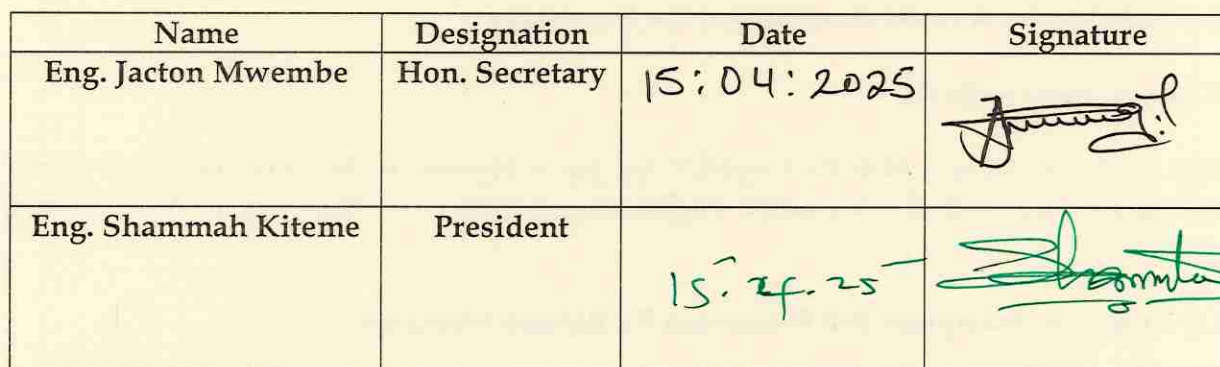 Name Designation Date Signature
Eng. Jacton Mwembe Hon. Secretary 15:04:2025
Eng. Shammah Kiteme President
15. 25